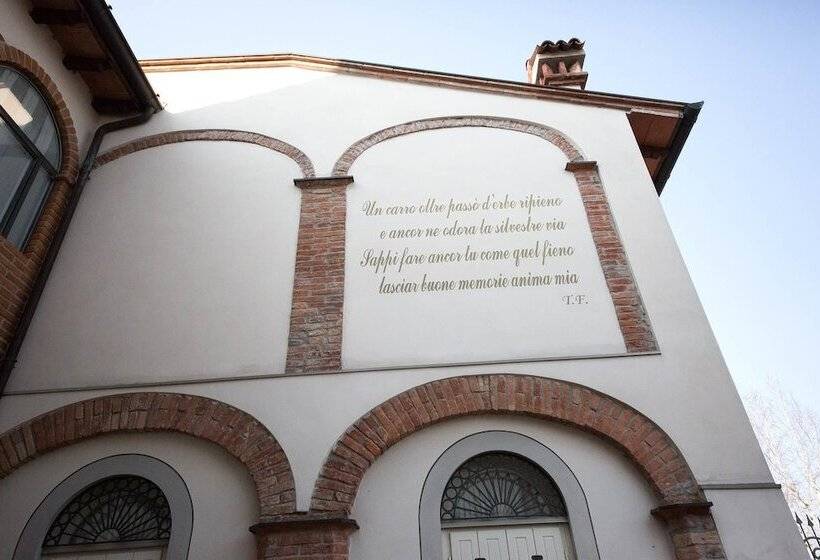 Un carro oltre passò d'erbe ripieno
e ancor ne odora la silvestre via
Sappi fare ancor tu come quel fieno
lasciar buone memorie anima mia
T.F.